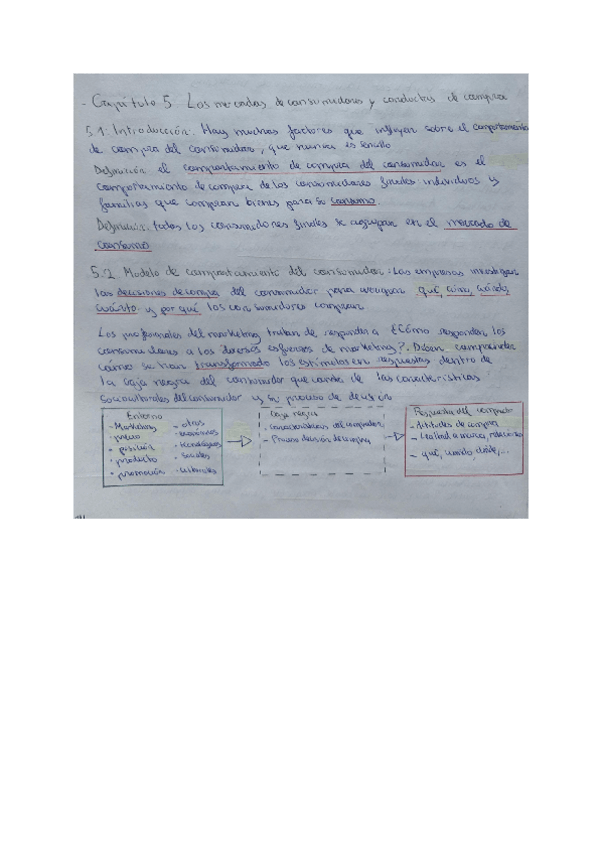 - Capítulo 5 Los mercados de consumidores y conductas de compra
5.1. Introducción: Hay muchos factores que influyen sobre el comportamiento
de compra del consumidor, que nunca es sencillo
Definición: el comportamiento de compra del consumidor es el
comportamiento de compra de los consumidores finales individuos y
familias que compran bienes para su consumo.
Definición: todos los consumidores finales se agrupan en el mercado de
consumo
5.2. Modelo de comportamiento del consumidor: Las empresas investigan
las decisiones de compra del consumidor para averiguar qué, cómo, cuándo,
cuánto y por qué los consumidores compran
Los profesionales del marketing tratan de responder a ¿Cómo responden los
consumidores a los diversos esfuerzos de marketing?. Deben comprender
cómo se han transformado los estímulos en respuestas dentro de
la caja negra del consumidor que consta de las características
socioculturales del consumidor y su proceso de decisión
Entorno
- Marketing
· precio
· posición
· producto
· promoción
- otros
- económicos
- tecnológicos
- sociales
- culturales
Caja negra
- características del comprador
- Proceso decisión de compra
Respuesta del comprador
- Actitudes de compra
- Lealtad a marca, relaciones
- qué, cuándo, dónde,...